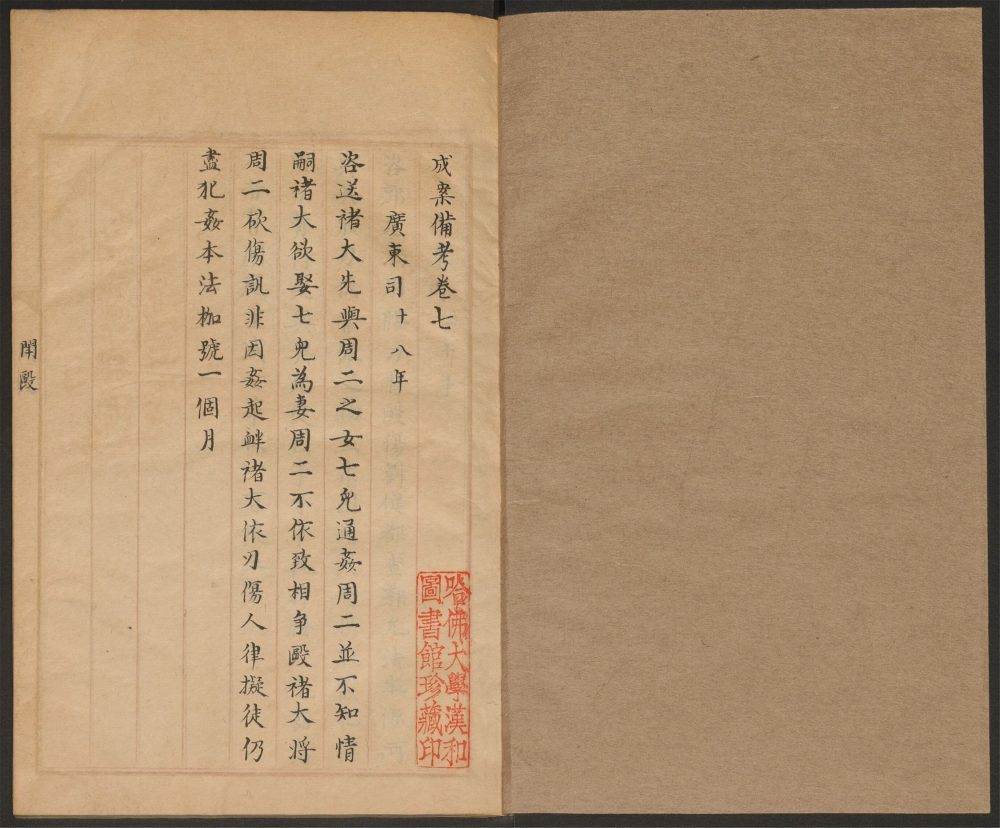 成案備考卷七
廣東司 十八年
咨送褚大先與周二之女七兒通姦周二並不知情
嗣褚大欲娶七兒為妻周二不依致相爭毆褚大將
周二砍傷訊非因姦起衅褚大依刃傷人律擬徒仍
盡犯姦本法枷號一個月
鬥毆
哈佛大學漢和
圖書館珍藏印